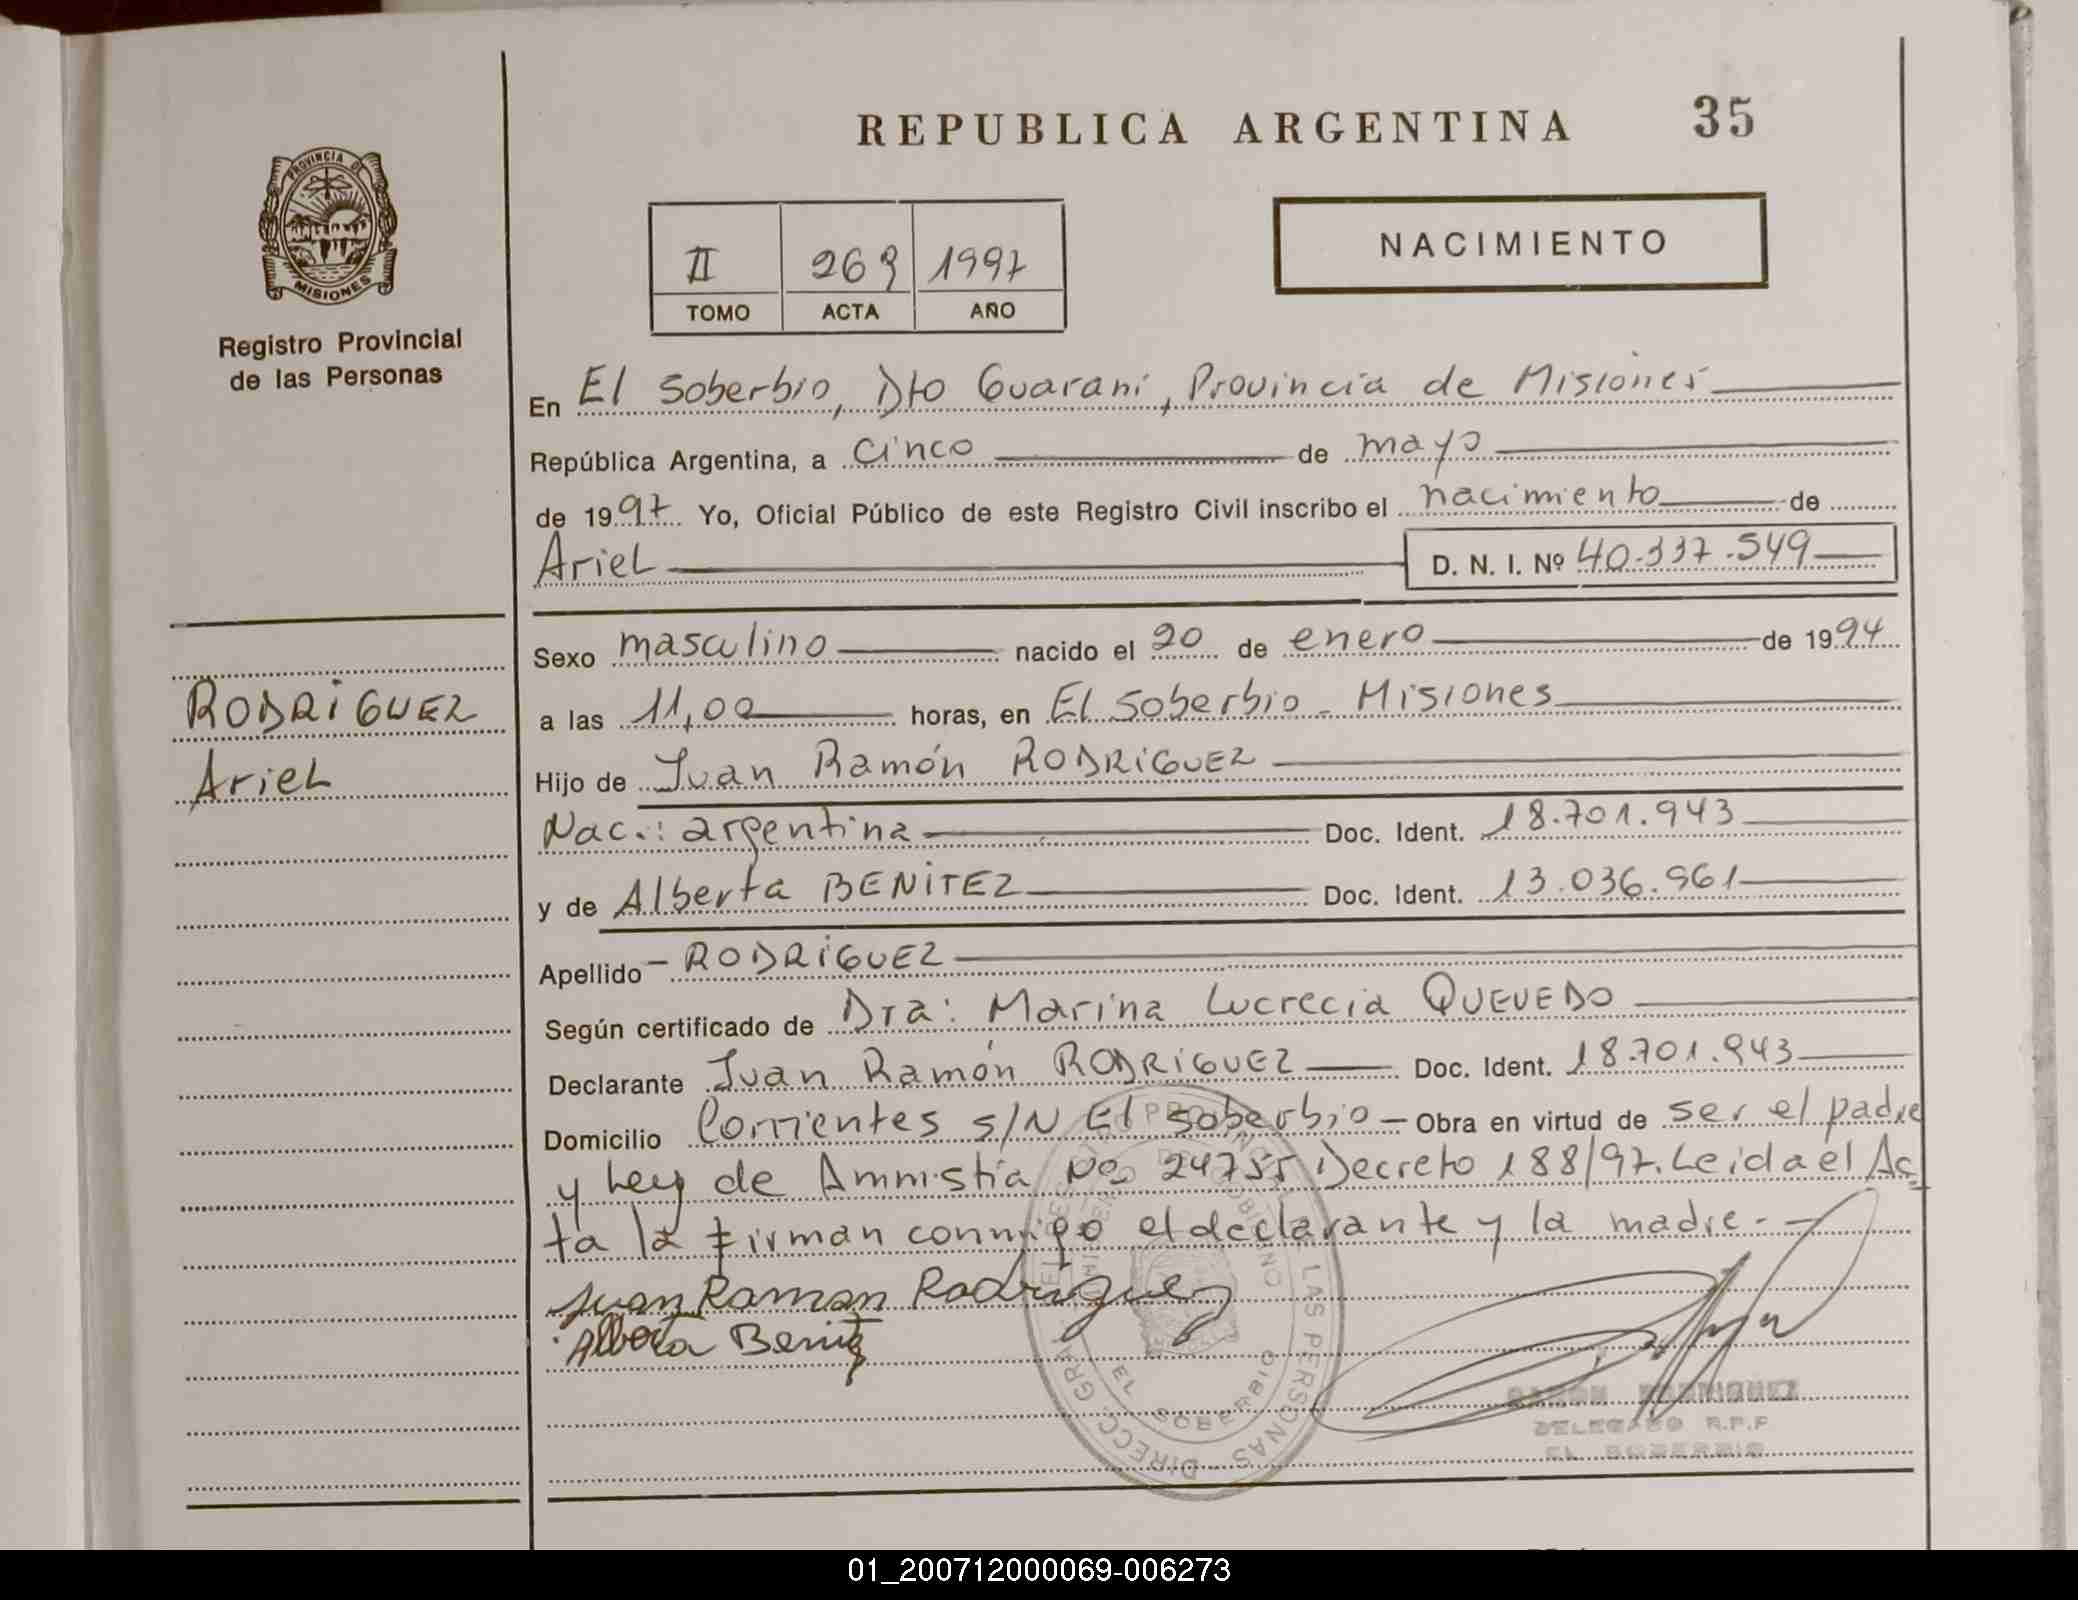 REPUBLICA ARGENTINA 35
PROVINCIA DE
MISIONES
Registro Provincial
de las Personas
II 269 1997
TOMO ACTA AÑO
NACIMIENTO
En El Soberbio, Dto Guaraní, Provincia de Misiones
República Argentina, a cinco de mayo
de 1997 Yo, Oficial Público de este Registro Civil inscribo el nacimiento de
Ariel D. N. I. Nº 40.337.549
Sexo masculino nacido el 20 de enero de 1994
a las 11,00 horas, en El Soberbio - Misiones
Hijo de Juan Ramón RODRIGUEZ
Nac.: argentina Doc. Ident. 18.701.943
y de Alberta BENITEZ Doc. Ident. 13.036.961
Apellido - RODRIGUEZ
Según certificado de Dra: Marina Lucrecia QUEVEDO
Declarante Juan Ramón RODRIGUEZ Doc. Ident. 18.701.943
Domicilio Corrientes s/N El Soberbio - Obra en virtud de ser el padre
y Ley de Amnistia No 24755 Decreto 188/97. Leida el Ac
ta la firman conmigo el declarante y la madre. -
Juan Ramon Rodriguez
Alberta Benitez
RODRIGUEZ
Ariel
EL SOBERBIO
LAS PERSONAS - DIRECC. GRAL
RAMON RODRIGUEZ
DELEGADO R.P.P
EL SOBERBIO
01_200712000069-006273